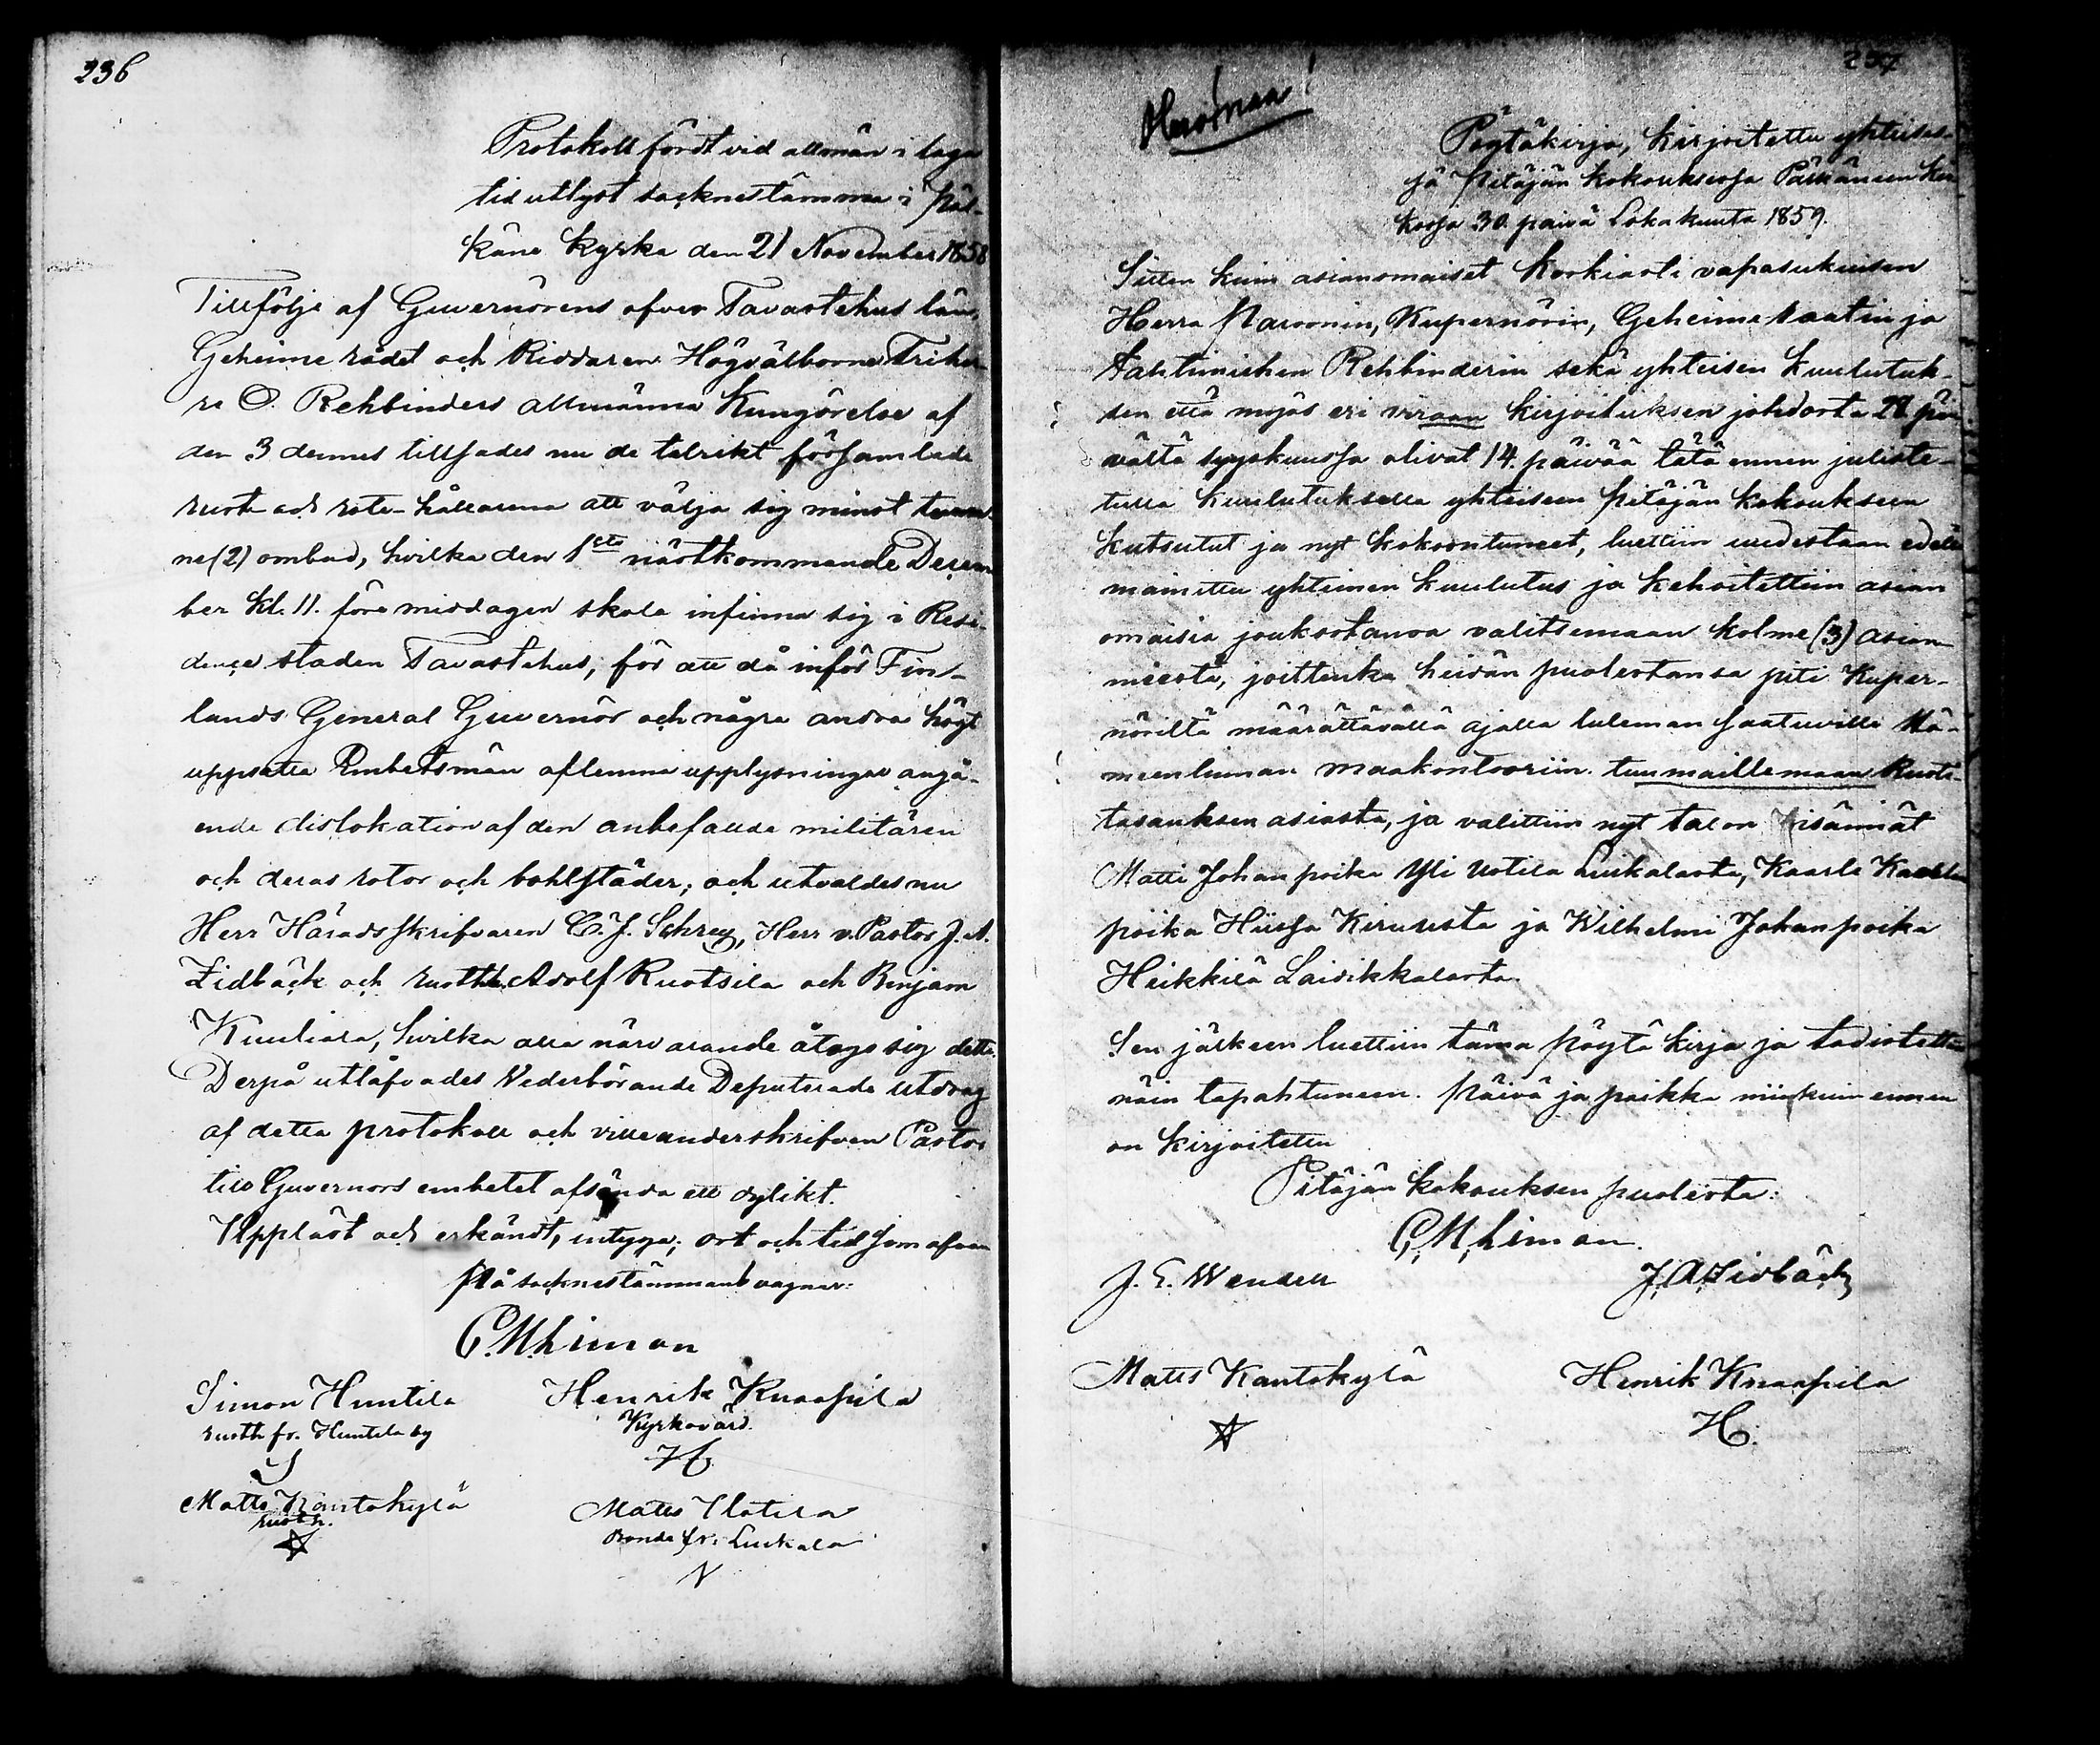 236
Protokoll fördt vid allmän i laga
tid utlyst sacknestämma i Päl-
käne Kyrka den 21 November 1858
Tillfölje af Guvernörens öfver Tavastehus län,
Geheime rådet och Riddaren Högvälborne Friher-
re O. Rehbinders allmänna Kungörelse af
den 3 dennes tillsades nu de talrikt församlade
rust och rote-hållarena att välja sig minst tvenn-
ne (2) ombud, hvilka den 1sta nästkommande Decem
ber kl. 11. före middagen skola infinna sig i Resi-
dence staden Tavastehus, för att då inför Fin-
lands General Guvernör och några andra högt
uppsatta Embetsmän aflemna upplysningar angå-
ende dislokation af den anbefallda militären
och deras rotor och bohlstäder; och utvaldes nu
Herr Häradsskrifvaren C. J. Schrey, Herr v. Pastor J. A.
Lidbäck och rusth. Adolf Ruotsila och Benjam
Kuuliala, hvilka alla närvarande åtogo sig detta.
Derpå utlåfvades Vederbörande Deputerade utdrag
af detta protokoll och ville underskrifven Pastor
till Guvernörs embetet afsända ett dylikt.
Uppläst och erkändt, intyga; ort och tid som ofvan
På sacknestämmans vägnar:
C. M. Liman
Simon Huntila
rusth fr. Huntila by
S
Henrik Knaapila
Kyrkovärd.
H
Matts Kantokylä
rusth.
Matts Uotila
Bonde fr. Luikala
237
Pöytäkirja, kirjoitettu yhteises-
sä Pitäjän kokouksessa Pälkäneen Kir
kossa 30. päivä Lokakuuta 1859.
Sitten kuin asianomaiset Korkiasti vapasukuisen
Herra Paroonin, Kupernörin, Geheime raatin ja
Rehbinderin sekä yhteisen kuulutuk-
sen että myös eri viraan kirjoituksen johdosta 28 päi
västä syyskuussa olivat 14. päivää tätä ennen juliste-
tulla kuulutuksella yhteiseen pitäjän kokoukseen
kutsutut ja nyt kokoontuneet, luettiin uudestaan edellä
mainittu yhteinen kuulutus ja kehoitettiin asian
omaisia joukostansa valitsemaan kolme (3) asian
miestä, joittenka heidän puolestansa piti Kuper-
nöriltä määrättävällä ajalla tuleman saatuvilla Hä-
meenlinnan maakontooriin tunmaillemaan Ruoti-
tasauksen asiasta, ja valittiin nyt talon isännät
Matti Johan poika Yli Uotila Luikalasta, Kaarle Kaarlen
poika Hiissa Kirvusta ja Wilhelmi Johan poika
Heikkilä Laivikkalasta.
Sen jälkeen luettiin tämä pöytä kirja ja todistettiin
näin tapahtuneen. Päivä ja paikka niinkuin ennen
on kirjoitettu
Pitäjän kokouksen puolesta:
C. M. Liman.
J. E. Wendell
J. A. Lidbäck
Matts Kantokylä
Henrik Knaapila
H.